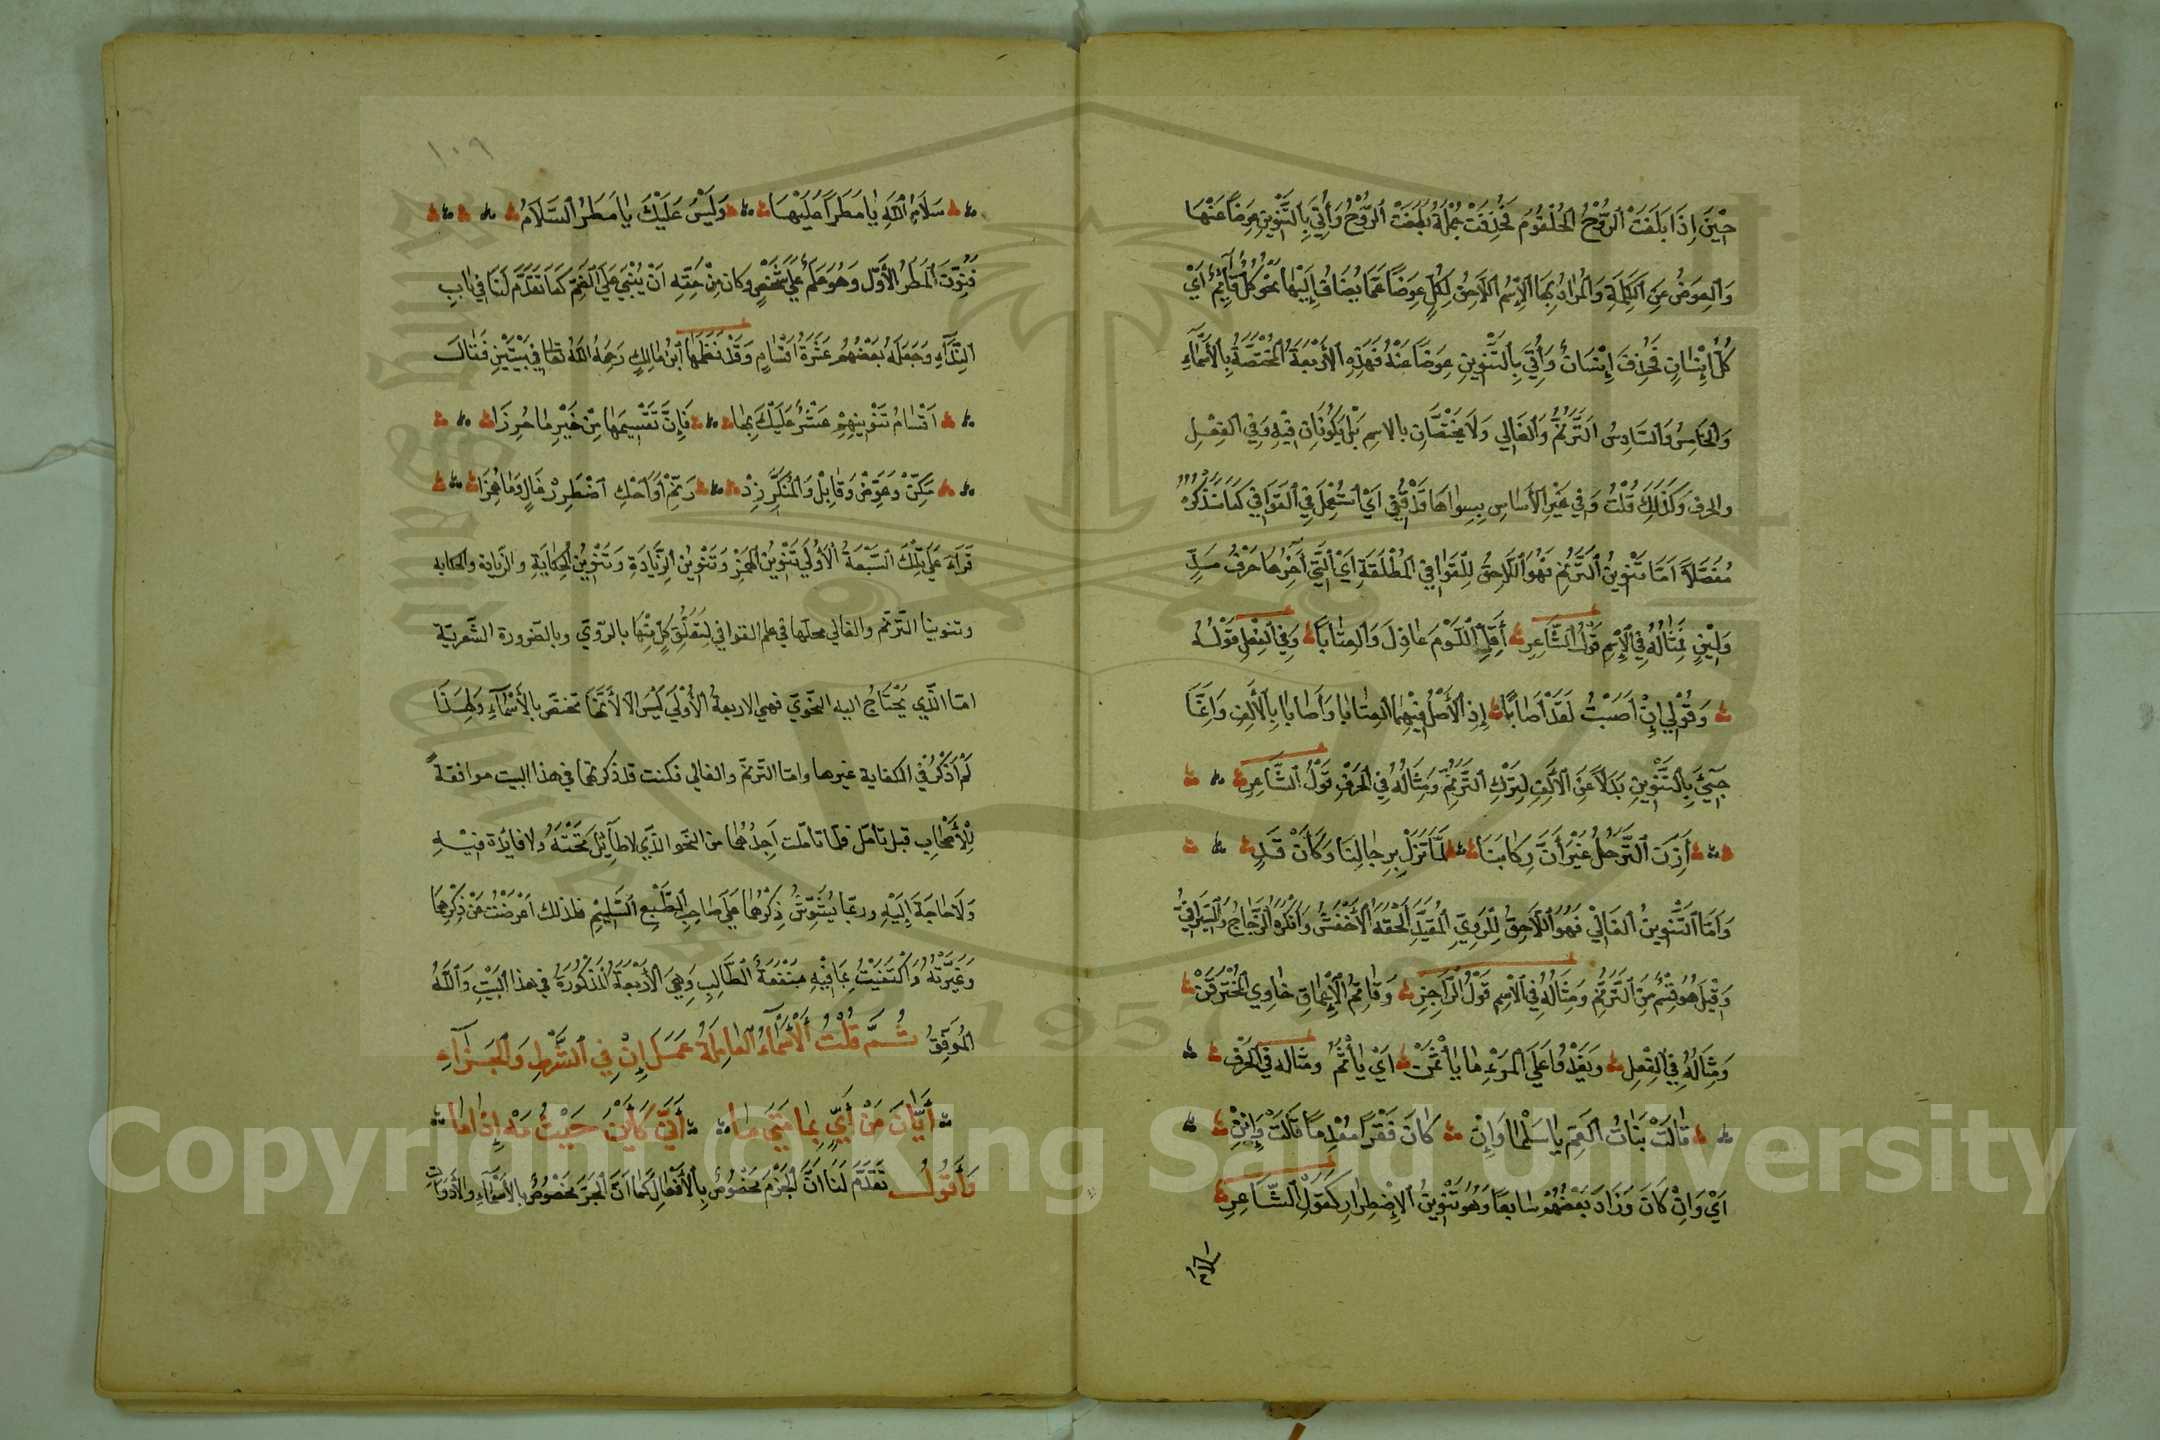 حِيْنَ اِذَا بَلَغَتْ الرُّوْحُ الحُلْقُومَ فَحُذِفَتْ جُمْلَةُ بَلَغَتْ الرُّوْحُ وَأُتِيَ بِالتَّنْوِينِ عِوَضًا عَنْهَا
وَالعِوَضُ عَنِ الكَلِمَةِ وَالمُرَادُ بِهَا الاِسْمُ اللَّاحِقُ لِكُلٍّ عِوَضًا عَمَّا يُضَافُ إِلَيْهَا نَحْوُ كُلٌّ قَآئِمٌ أَيْ
كُلُّ إِنْسَانٍ فَحُذِفَ إِنْسَانٌ وَأُتِيَ بِالتَّنْوِينِ عِوَضًا عَنْهُ فَهَذِهِ الأَرْبَعَةُ المُخْتَصَّةُ بِالأَسْمَآءِ
وَالخَامِسُ وَالسَّادِسُ التَّرَنُّمُ وَالغَالِي وَلَا يَخْتَصَّانِ بالاسِمِ بَلْ يَكُونَانِ فِيْهِ وَفِي الفِعْلِ
والحرف وَكَذَلِكَ قُلْتُ وَفِي غَيْرِ الأَسَاسِ بِسِوَاهَا قَدْ قُفِّي اَيْ اسْتُعْمِلَ فِي القَوَافِي كَمَا سَنَذْكُرُهُ
مُفَصَّلًا اَمَّا تَنْوِينُ التَّرَنُّمِ فَهُوَ اللَّاحِقُ لِلْقَوَافِي المُطْلَقَةِ اَيْ الَّتِي آخِرُهَا حَرْفُ مَدٍّ
وَلِيْنٍ فَمِثَالُهُ فِي الاِسْمِ قَوْلُ الشَّاعِرِ أَقِلِّي اللَّوْمَ عَاذِلَ وَالعِتَابًا وَفِي الفِعْلِ قَوْلُهُ
وَقُوْلِي إِنْ أَصَبْتُ لَقَدْ أَصَابًا إِذِ الأَصْلُ فِيْهِمَا العِتَابَا وَأَصَابَا بِالأَلِفِ وَاِنَّمَا
جِيْئَ بِالتَّنْوِيْنِ بَدَلًا عَنِ الاَلِفِ لِتَرْكِ التَّرَنُّمِ وَمِثَالُهُ فِي الحَرْفِ قَوْلُ الشَّاعِرِ
اَزِفَ التَّرَحُّلُ غَيْرَ أَنَّ رِكَابَنَا لَمَّا تَزَلْ بِرِحَالِنَا وَكَأَنْ قَدٍ
وَاَمَّا التَّنْوِينُ الغَالِي فَهُوَ اللَّاحِقُ لِلْرَوِيِّ المُقَيَّدِ اَلْحَقَهُ الأَخْفَشُ وَأَنْكَرَهُ الزَّجَّاجُ وَالسِّيْرَافِيُّ
وَقِيْلَ هُوَ قِسْمٌ مِنَ التَّرَنُّمِ وَمِثَالُهُ فِي الاِسْمِ قَوْلُ الرَّاجِزِ وَقَاتِمِ الأَعْمَاقِ خَاوِي المُخْتَرَقَنْ
وَمِثَالُهُ فِي الفِعْلِ وَيَعْدُوْا عَلَى المَرْءِ مَا يَأْتَمِرَنْ اَيْ يَأْتَمِرُ ومثاله في الحَرْفِ
قَالَتْ بَنَاتُ العَمِّ يَا سَلْمَى وَاِنْ كَانَ فَقِيْرًا مُعْدِمًا قَالَتْ وَاِنِنْ
اَيْ وَاِنْ كَانَ وَزَادَ بَعْضُهُمْ سَابِعًا وَهُوَ تَنْوِينُ الاِضْطِرَارِ كَقَوْلِ الشَّاعِرِ
سلام
١٠٩
سَلَامُ اللهِ يَا مَطَرًا عَلَيْهَا وَلَيْسَ عَلَيْكَ يَا مَطَرُ السَّلَامُ
فَنُوِّنَ المَطَرُ الأَوَّلُ وَهُوَ عَلَمٌ عَلَى شَخْصٍ وكان مِنْ حَقِّهِ اَنْ يُبْنَى عَلَى الضَّمِّ كَمَا تَقَدَّمَ لَنَا فِي بَابِ
النِّدَآءِ وَجَعَلَهُ بَعْضُهُمْ عَشَرَةَ اَقْسَامٍ وَقَدْ نَظَمَهَا ابْنُ مَالِكٍ رَحِمَهُ اللهُ تَعَا فِي بَيْتَيْنِ فَقَالَ
اَقْسَامُ تَنْوِيْنِهِمْ عَشْرٌ عَلَيْكَ بِهَا فَاِنَّ تَقْسِيْمَهَا مِنْ خَيْرِ مَا حُرِزَا
مَكِّنْ وَعَوِّضْ وَقَابِلْ وَالمُنَكَّرَ زِدْ وَرَنِّمْ أَوْ احْكِ اضْطَرِرْ غَالٍ وَمَا هُمِزَا
فَزَادَ عَلَى تِلْكَ السَّبْعَةِ الأُوْلَى تَنْوِيْنَ الهَمْزِ وَتَنْوِيْنَ الزِّيَادَةِ وَتَنْوِيْنَ الحِكَايَةِ والزيادة والحكاية
وتنوينا التَّرَنُّم والغالي محلّها في علم القوافي لتعلُّقِ كلٍّ مِنْهَا بالرّويّ وبالضرورة الشّعريّة
امّا الّذي يَحْتَاجُ اليه النّحويّ فهي الاربعةُ الأُوْلَى لَيْسَ الا لأَنَّهَا تختصّ بالأَسْمَآءِ وَلِهَذَا
لَمْ اَذْكُرْ في الكفاية غيرها وامّا التّرنّم والغالي فكنت قد ذكرتهما في هذا البيت موافقةً
لِلْأَصْحَابِ قبل تأمّل فلمّا تأمّلت اَجِدُهُمَا من النّحو الّذي لا طَآئِلَ تَحْتَهُ ولا فايدَة فِيْهِ
وَلَا حَاجَةَ اِلَيْهِ وربّما يُشَوِّشُ ذِكْرُهُمَا عَلَى صَاحِبِ الطَّبْعِ السَّلِيْمِ فلذلك اَعْرَضْتُ عَنْ ذِكْرِهِمَا
وَغَيَّرْتُهُ وَاكْتَفَيْتُ بِمَا فِيْهِ مَنْفَعَةُ الطَّالِبِ وَهِيَ الأَرْبَعَةُ المَذْكُورَةُ فِي هذا البَيْتِ وَاللَّهُ
المُوَفِّقُ ثُمَّ قُلْتُ اَلأَسْمَآءُ العَامِلَةُ عَمَلَ اِنْ فِي الشَّرْطِ وَالجَزَآءِ
أَيَّانَ مَنْ أَيٍّ بِمَا مَتَى مَا أَنَّى كَأَيْنَ حَيْثُ مَهْ اِذَامَا
وَأَقُوْلُ تَقَدَّمَ لَنَا اَنَّ الجَزْمَ مَخْصُوْصٌ بِالأَفْعَالِ كَمَا اَنَّ الجَرَّ مَخْصُوْصٌ بِالأَسْمَآءِ والأَدَوَاتِ
Copyright © King Saud University
1957